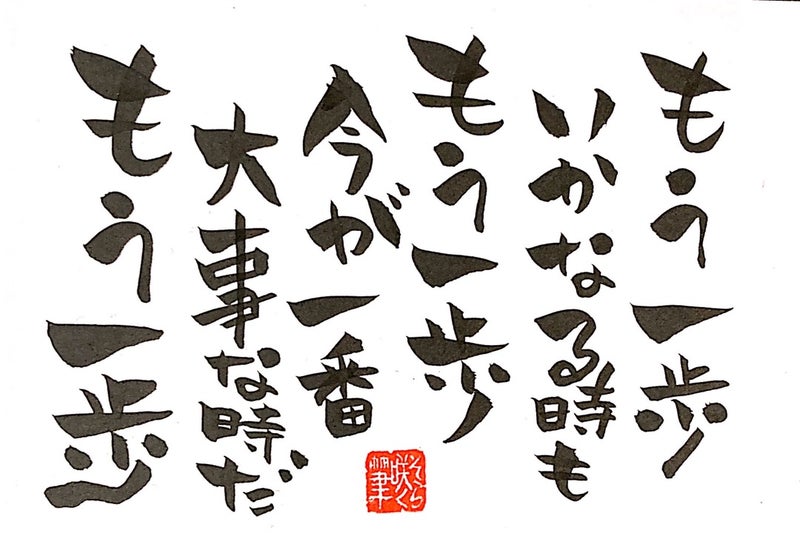 もう一歩
いかなる時も
もう一歩
今が一番
大事な時だ
もう一歩
そらら
咲く
筆